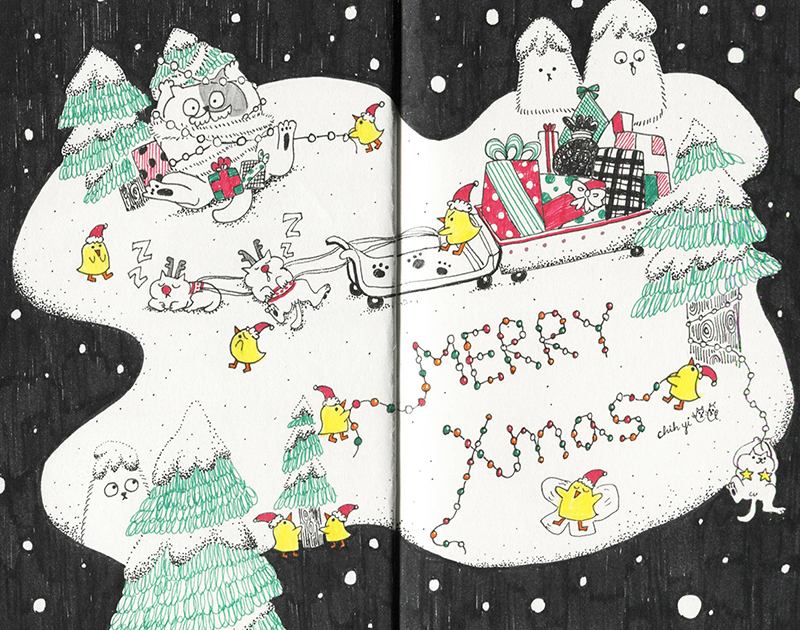 Z Z Z
Z Z Z
MERRY
Xmas
chih yi